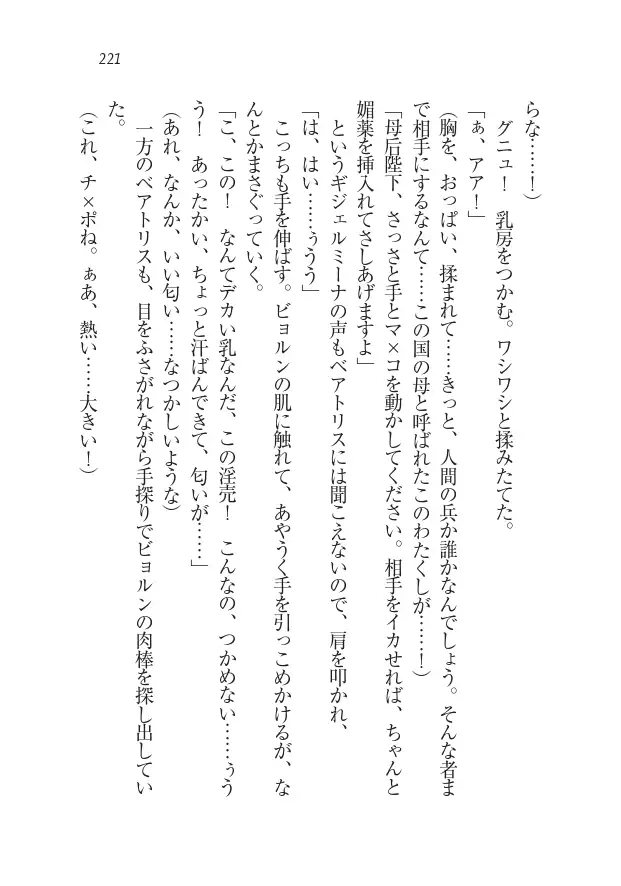 221
らな……！）
　グニュ！　乳房をつかむ。ワシワシと揉みたてた。
「ぁ、アア！」
（胸を、おっぱい、揉まれて……きっと、人間の兵か誰かなんでしょう。そんな者ま
で相手にするなんて……この国の母と呼ばれたこのわたくしが……！）
「母后陛下、さっさと手とマ×コを動かしてください。相手をイカせれば、ちゃんと
媚薬を挿入れてさしあげますよ」
　というギジェルミーナの声もベアトリスには聞こえないので、肩を叩かれ、
「は、はい……ぅうう」
　こっちも手を伸ばす。ビョルンの肌に触れて、あやうく手を引っこめかけるが、な
んとかまさぐっていく。
「こ、この！　なんてデカい乳なんだ、この淫売！　こんなの、つかめない……ぅう
う！　あったかい、ちょっと汗ばんできて、匂いが……」
（あれ、なんか、いい匂い……なつかしいような）
　一方のベアトリスも、目をふさがれながら手探りでビョルンの肉棒を探し出してい
た。
（これ、チ×ポね。ぁあ、熱い……大きい！）